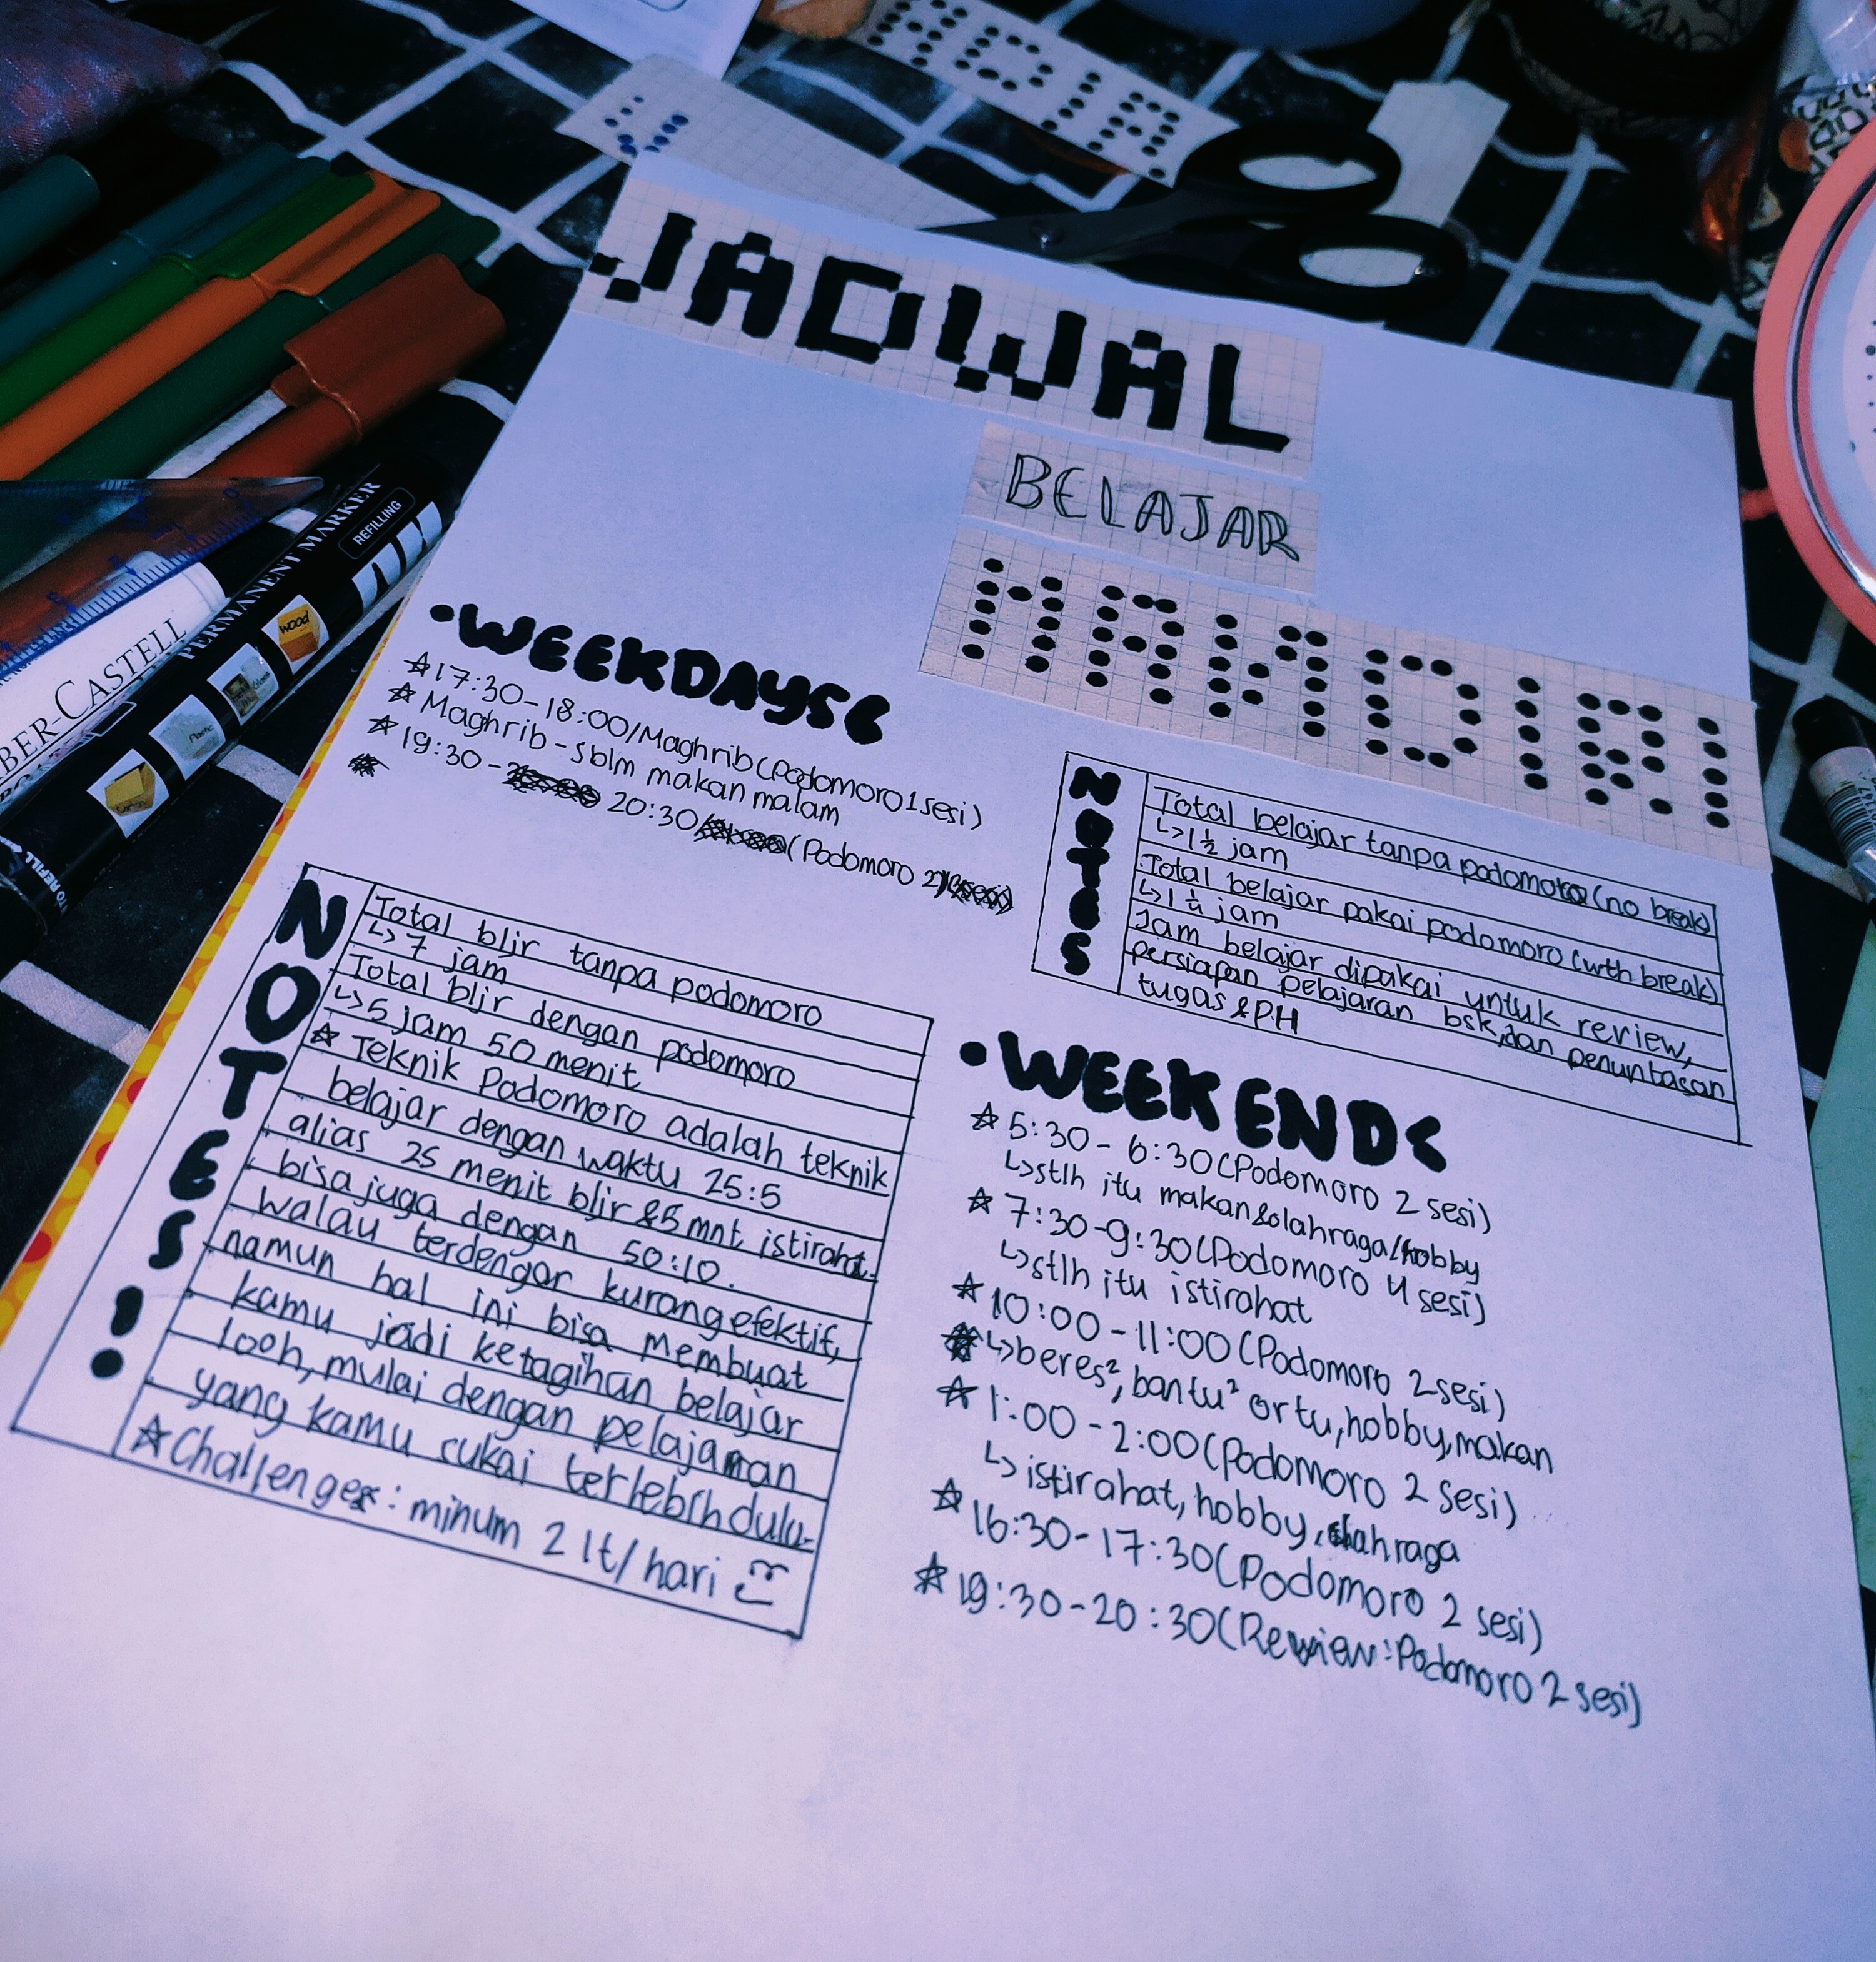 ADIA
JADWAL
BELAJAR
MANDIRI
•WEEKDAYS
☆17:30-18:00/Maghrib(Podomoro 1 sesi)
☆Maghrib-sblm makan malam
☆19:30- 20:30 (Podomoro 2)
NOTES
Total belajar tanpa podomoro (no break)
↳1 1/2 jam
Total belajar pakai podomoro (wth break)
↳1 1/4 jam
Jam belajar dipakai untuk review,
persiapan pelajaran bsk,dan penuntasan
tugas & PH
NOTES!
Total bljr tanpa podomoro
↳7 jam
Total bljr dengan podomoro
↳5 jam 50 menit
☆ Teknik Podomoro adalah teknik
belajar dengan waktu 25:5
alias 25 menit bljr & 5 mnt istirahat.
bisa juga dengan 50:10.
walau terdengar kurang efektif,
namun hal ini bisa membuat
kamu jadi ketagihan belajar
looh, mulai dengan pelajaran
yang kamu sukai terlebih dulu.
☆Challenges: minum 2 lt/hari
•WEEKENDS
☆5:30-6:30(Podomoro 2 sesi)
↳stlh itu makan&olahraga/hobby
☆7:30-9:30(Podomoro 4 sesi)
↳stlh itu istirahat
☆10:00-11:00(Podomoro 2 sesi)
↳beres², bantu² ortu, hobby, makan
☆1:00-2:00(Podomoro 2 sesi)
↳istirahat, hobby, olahraga
☆16:30-17:30(Podomoro 2 sesi)
☆19:30-20:30(Review:Podomoro 2 sesi)
BER-CASTELL
PERMANENT MARKER
REFILLING
wood
Plastic
TO REFILL